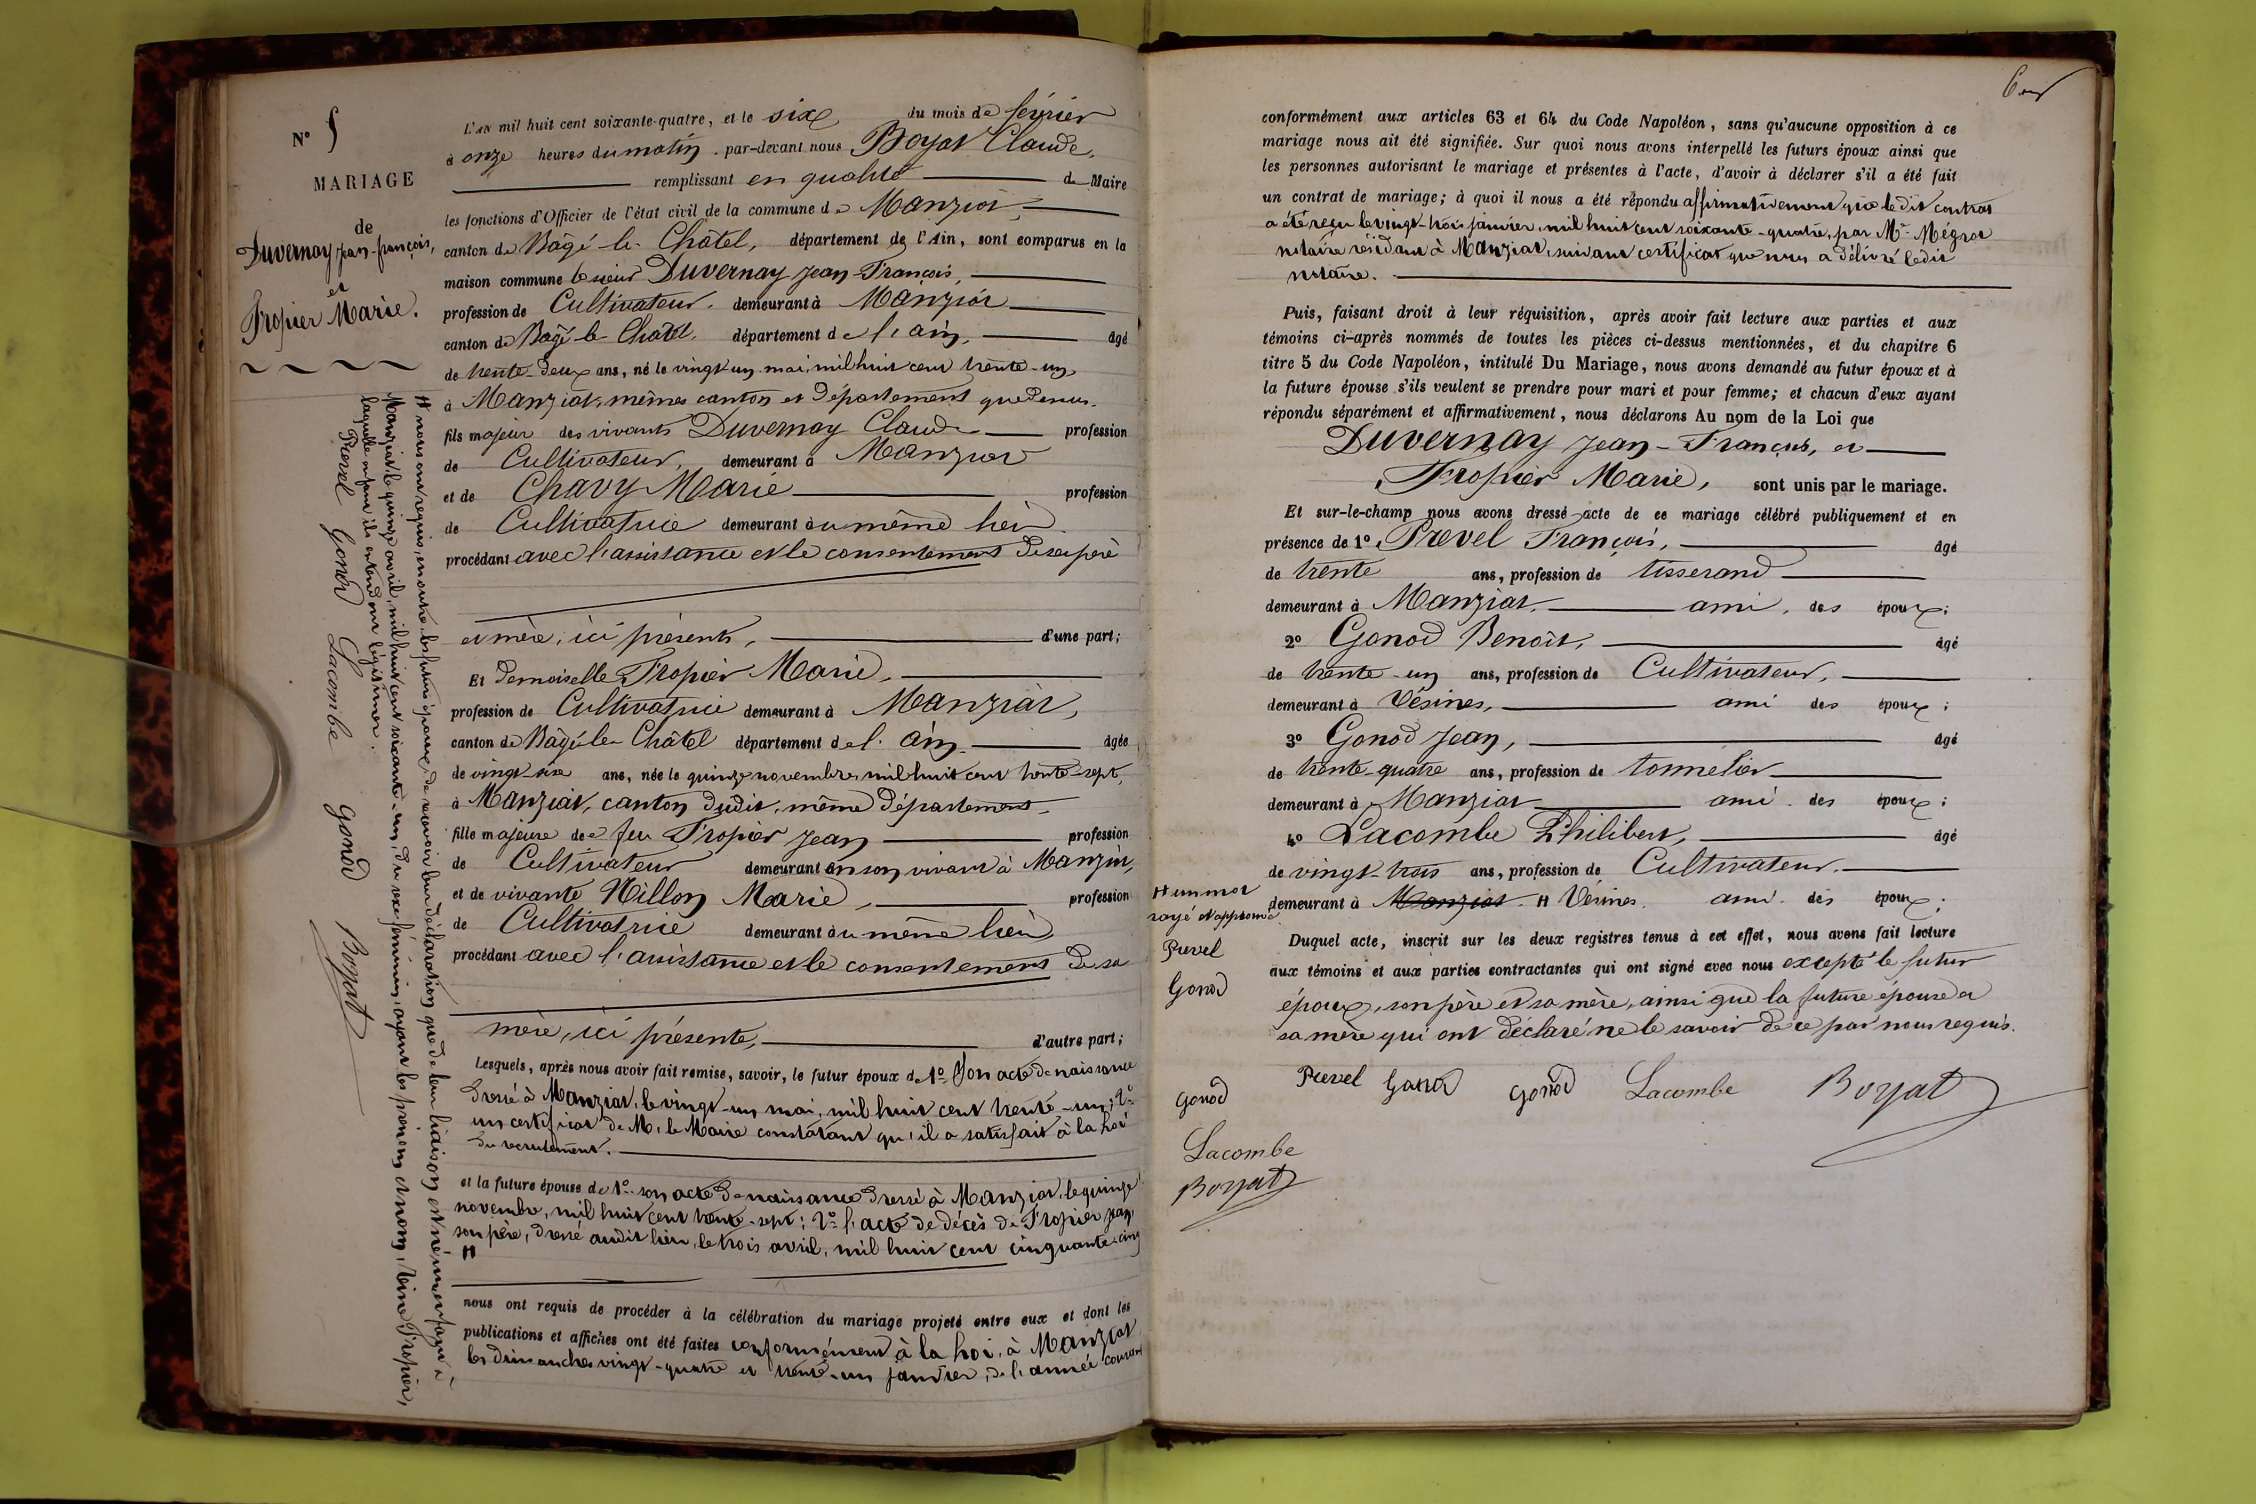 N° 5
MARIAGE
de
Duvernay Jean-françois,
et
Tropier Marie.
L'AN mil huit cent soixante-quatre, et le six du mois de février
à onze heures du matin par-devant nous Boyat Claude,
remplissant en qualité de Maire
les fonctions d'Officier de l'état civil de la commune de Manziat,
canton de Bâgé-le-Châtel, département de l'Ain, sont comparus en la
maison commune le sieur Duvernay Jean-François,
profession de Cultivateur, demeurant à Manziat
canton de Bâgé-le-Châtel, département de l'ain, âgé
de trente-deux ans, né le vingt un mai, mil huit cent trente-un
à Manziat, mêmes canton et département que dessus
fils majeur des vivants Duvernay Claude profession
de Cultivateur, demeurant à Manziat
et de Chavy Marie profession
de Cultivatrice demeurant au même lieu
procédant avec l'assistance et le consentement de ses père
et mère, ici présents, d'une part;
Et demoiselle Tropier Marie,
profession de Cultivatrice demeurant à Manziat,
canton de Bâgé-le-Châtel département de l'ain, âgée
de vingt-six ans, née le quinze novembre mil huit cent trente-sept,
à Manziat, canton dudit, même département
fille majeure de feu Tropier Jean profession
de Cultivateur demeurant en son vivant à Manziat,
et de vivante Millon Marie, profession
de Cultivatrice demeurant au même lieu
procédant avec l'assistance et le consentement de sa
mère, ici présente, d'autre part;
Lesquels, après nous avoir fait remise, savoir, le futur époux de 1° Son acte de naissance
dressé à Manziat, le vingt-un mai, mil huit cent trente-un; 2°
un certificat de M. le Maire constatant qu'il a satisfait à la loi
du recrutement.
et la future épouse de 1° son acte de naissance dressé à Manziat, le quinze
novembre, mil huit cent trente-sept; 2° l'acte de décès de Tropier Jean
son père, dressé audit lieu, le trois avril, mil huit cent cinquante-cinq
H
nous ont requis de procéder à la célébration du mariage projeté entre eux et dont les
publications et affiches ont été faites conformément à la loi, à Manziat
les dimanches vingt-quatre et trente-un janvier, de l'année courant
H nous ont requis, en outre, les futurs époux, de recevoir leur déclaration que de leur liaison est né un enfant à
Manziat le quinze avril, mil huit cent soixante-un, du sexe féminin, ayant les prénoms et nom, Tropier,
laquelle enfant ils entendent légitimer.
Prevel Gonod Lacombe Gonod Boyat
conformément aux articles 63 et 64 du Code Napoléon, sans qu'aucune opposition à ce
mariage nous ait été signifiée. Sur quoi nous avons interpellé les futurs époux ainsi que
les personnes autorisant le mariage et présentes à l'acte, d'avoir à déclarer s'il a été fait
un contrat de mariage; à quoi il nous a été répondu affirmativement que ledit contrat
a été reçu le vingt-trois janvier, mil huit cent soixante-quatre, par Me Mégrot
notaire résidant à Manziat, suivant certificat que nous a délivré ledit
notaire.
Puis, faisant droit à leur réquisition, après avoir fait lecture aux parties et aux
témoins ci-après nommés de toutes les pièces ci-dessus mentionnées, et du chapitre 6
titre 5 du Code Napoléon, intitulé Du Mariage, nous avons demandé au futur époux et à
la future épouse s'ils veulent se prendre pour mari et pour femme; et chacun d'eux ayant
répondu séparément et affirmativement, nous déclarons Au nom de la Loi que
Duvernay Jean-François, et
Tropier Marie, sont unis par le mariage.
Et sur-le-champ nous avons dressé acte de ce mariage célébré publiquement et en
présence de 1° Prevel François, âgé
de trente ans, profession de tisserand
demeurant à Manziat, ami des époux;
2° Gonod Benoît, âgé
de trente-un ans, profession de Cultivateur,
demeurant à Vésines, ami des époux;
3° Gonod Jean, âgé
de trente-quatre ans, profession de tonnelier
demeurant à Manziat ami des époux;
4° Lacombe Philibert, âgé
de vingt-trois ans, profession de Cultivateur.
demeurant à Manziat H Vésines. ami des époux;
Duquel acte, inscrit sur les deux registres tenus à cet effet, nous avons fait lecture
aux témoins et aux parties contractantes qui ont signé avec nous excepté le futur
époux, son père et sa mère, ainsi que la future épouse et
sa mère qui ont déclaré ne le savoir de ce par nous requis.
Prevel Gonod Gonod Lacombe Boyat
H un mot
rayé et approuvé
Prevel
Gonod
Gonod
Lacombe
Boyat